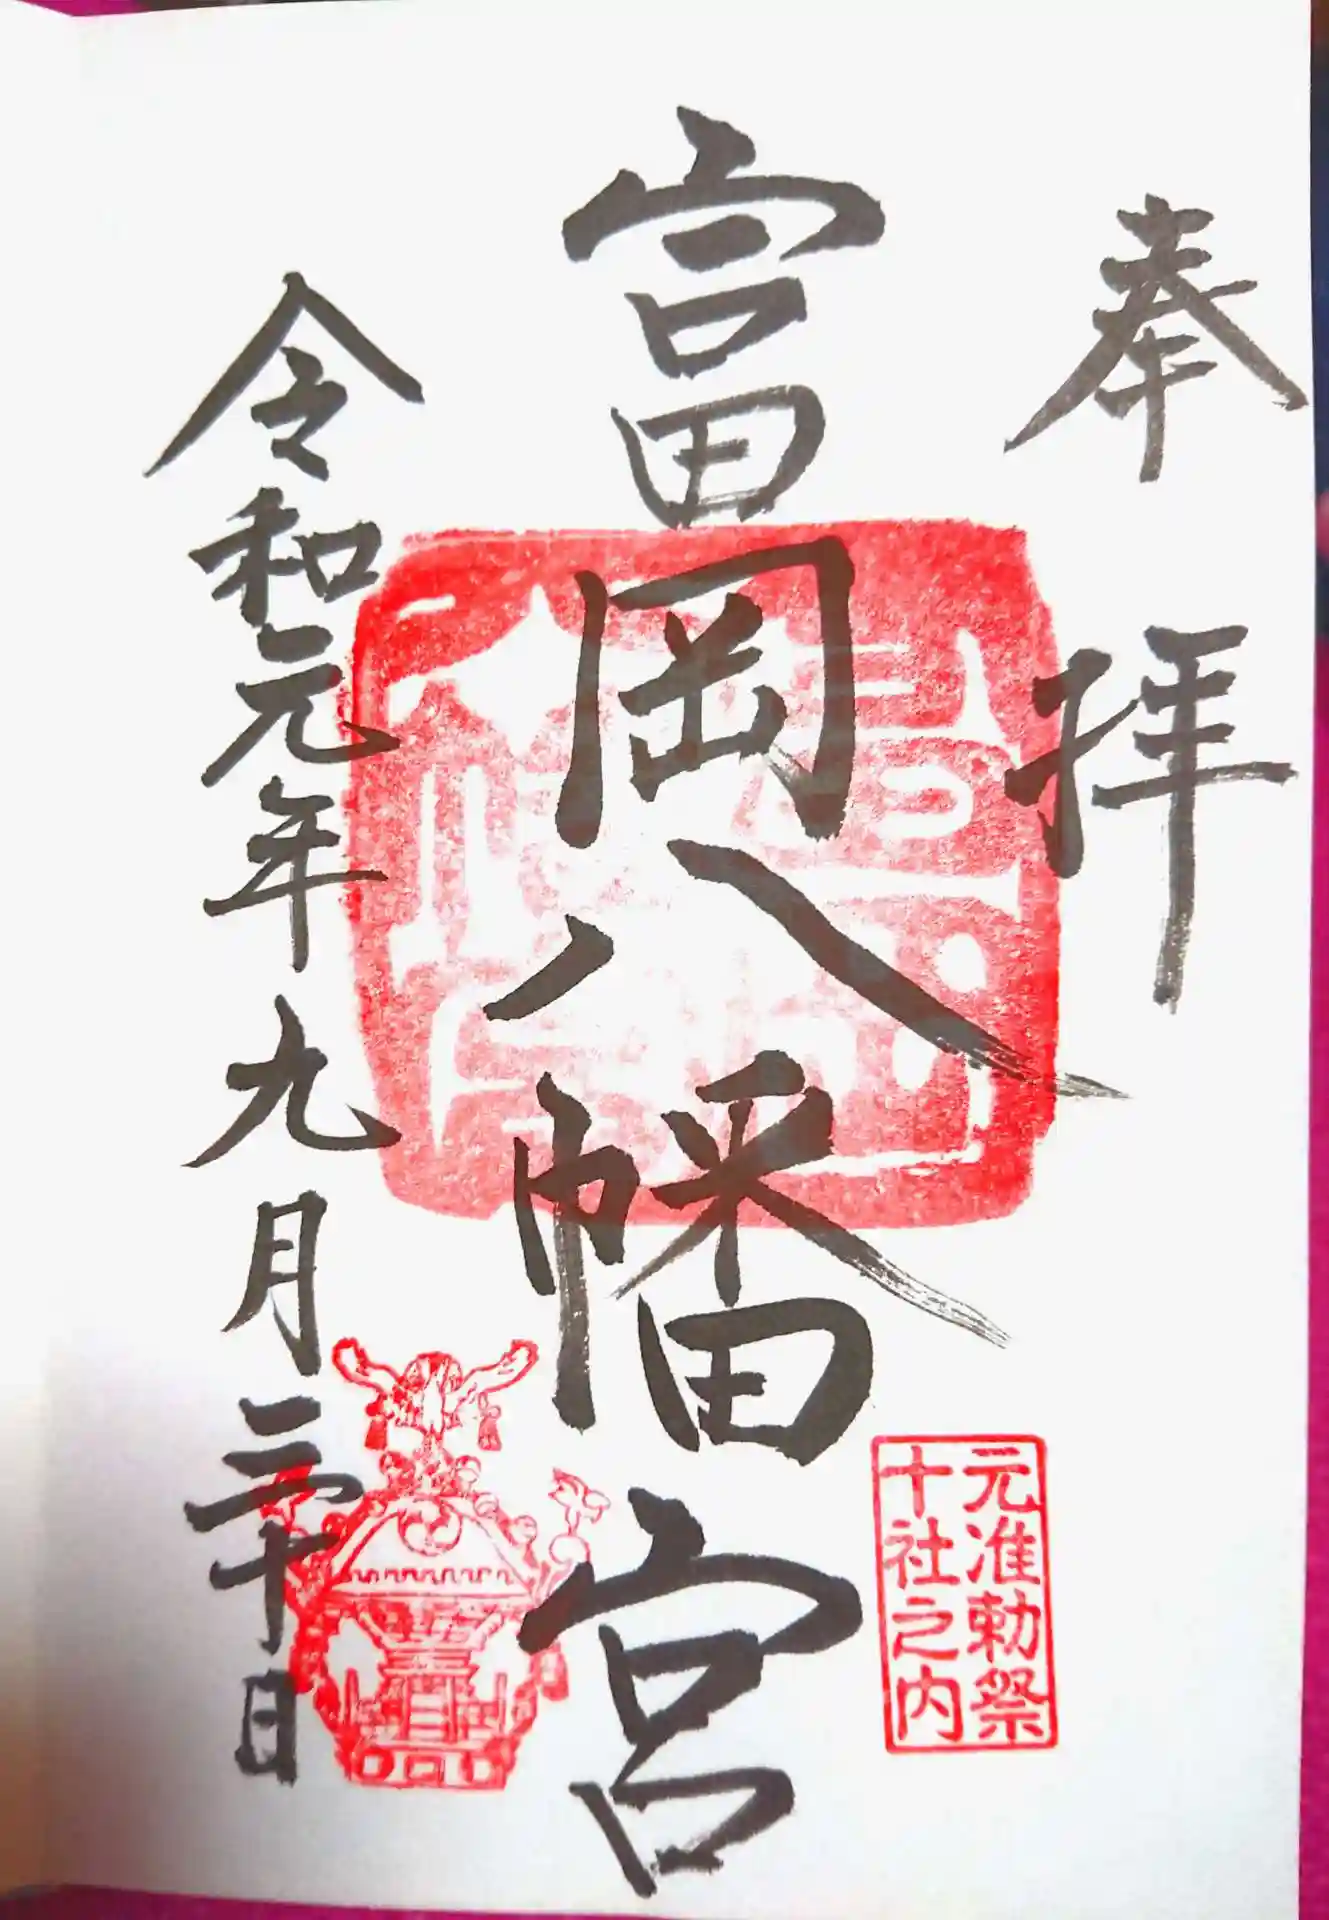 奉拝
富岡八幡宮
元准勅祭
十社之内
令和元年九月二十日